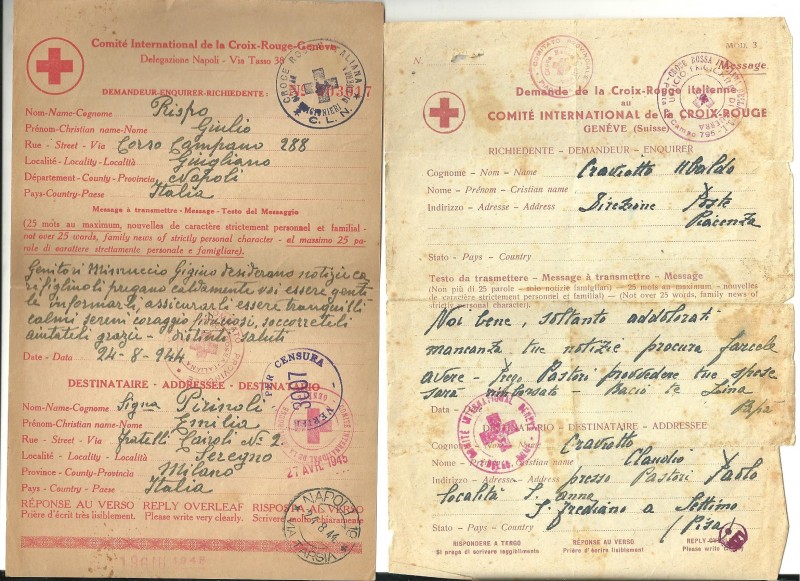 Comité International de la Croix-Rouge-Genève
Delegazione Napoli - Via Tasso 38
DEMANDEUR-ENQUIRER-RICHIEDENTE:
CROCE ROSSA ITALIANA
C.L.N.
Nom-Name-Cognome Rispo
Prénom-Christian name-Nome Giulio
Rue - Street - Via Corso Campano 288
Localité-Locality-Località Giugliano
Département-County-Provincia Napoli
Pays-Country-Paese Italia
Message à transmettre - Message - Testo del Messaggio
(25 mots au maximum, nouvelles de caractère strictement personnel et familial -
not over 25 words, family news of strictly personal character - al massimo 25 pa-
role di carattere strettamente personale e famigliare).
Genitori Misuruccio Gigino desiderano notizie ca
ri figlinoli pregano caldamente voi essere genti
le informarli, assicurarli essere tranquilli
calmi sereni coraggio fiduciosi, soccorreteli
aiutateli grazie - distinti saluti
Date - Data 24-8-944
PER CENSURA
3007
DESTINATAIRE - ADDRESSÉE - DESTINATARIO
Nom-Name-Cognome Signa Pirinoli
Prénom-Christian name-Nome Emilia
Rue - Street - Via fratelli Cairoli N° 2
Localité - Locality - Località Seregno
Province - County-Provincia Milano
Pays - Country - Paese Italia
27 AVR. 1945
RÉPONSE AU VERSO REPLY OVERLEAF RISPOSTA AL VERSO
Prière d'écrit très lisiblement. Please write very clearly. Scrivere chiaramente
NAPOLI
TARSIA
N.
MOD. 3
Message
Demande de la Croix-Rouge italienne
au
COMITÉ INTERNATIONAL de la CROIX-ROUGE
GENÉVE (Suisse)
RICHIEDENTE - DEMANDEUR - ENQUIRER
Cognome - Nom - Name Craviotto Ubaldo
Nome - Prénom - Cristian name
Indirizzo - Adresse - Address Direzione Poste
Piacenza
Stato - Pays - Country
Testo da trasmettere - Message à transmettre - Message
(Non più di 25 parole - solo notizie famigliari) - 25 mots au maximum - nouvelles
de caractère strictement personnel et familial) - (Not over 25 words, family news of
strictly personal character).
Noi bene, soltanto addolorati
mancanza tue notizie procura farcele
avere - Prego Pastori provvedere tue spese
sarà rimborsato - Bacio te Lina
Data - Papà
COMITÉ INTERNATIONAL
DESTINATARIO - DESTINATAIRE - ADDRESSÉE
Cognome Craviotto
Nome Claudio
Indirizzo presso Pastori Paolo
località S. Anna
S. Frediano a Settimo
Stato - Pays - Country (Pisa)
RISPONDERE A TERGO RÉPONSE AU VERSO REPLY OVERLEAF
Si prega di scrivere leggibilmente Prière d'écrire lisiblement Please write